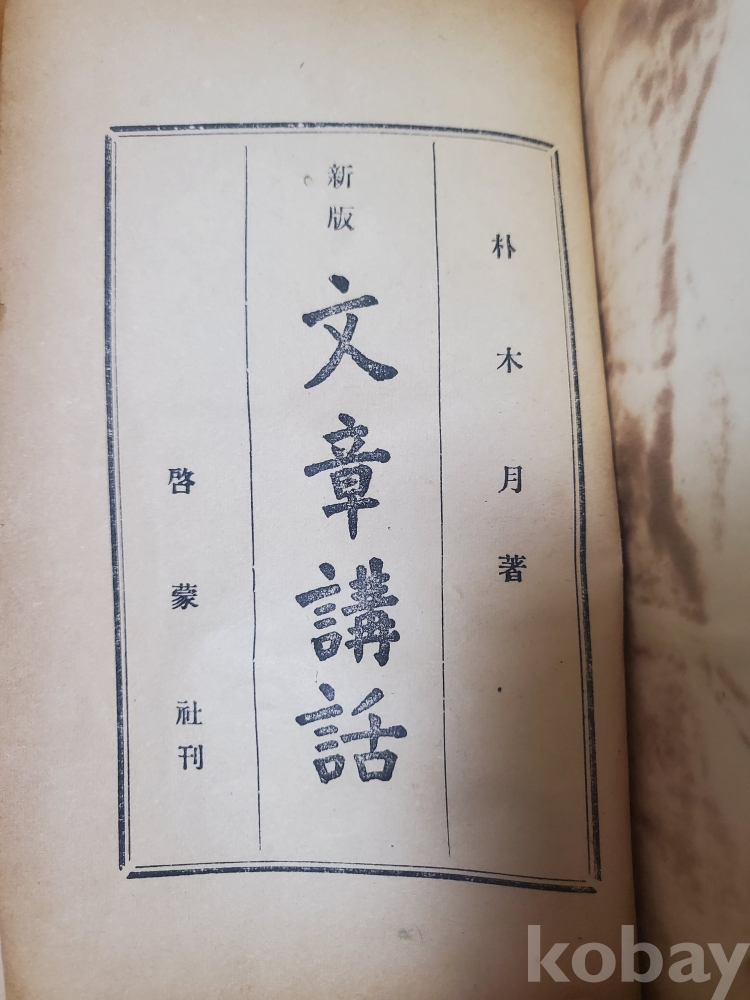 朴木月著
新版
文章講話
啓蒙社刊
kobay